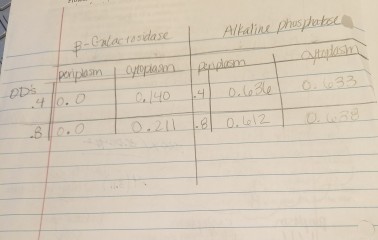 β-Galactosidase Alkaline phosphatase
periplasm cytoplasm periplasm cytoplasm
OD's
.4 0.0 0.140 .4 0.636 0.633
.8 0.0 0.211 .8 0.612 0.638